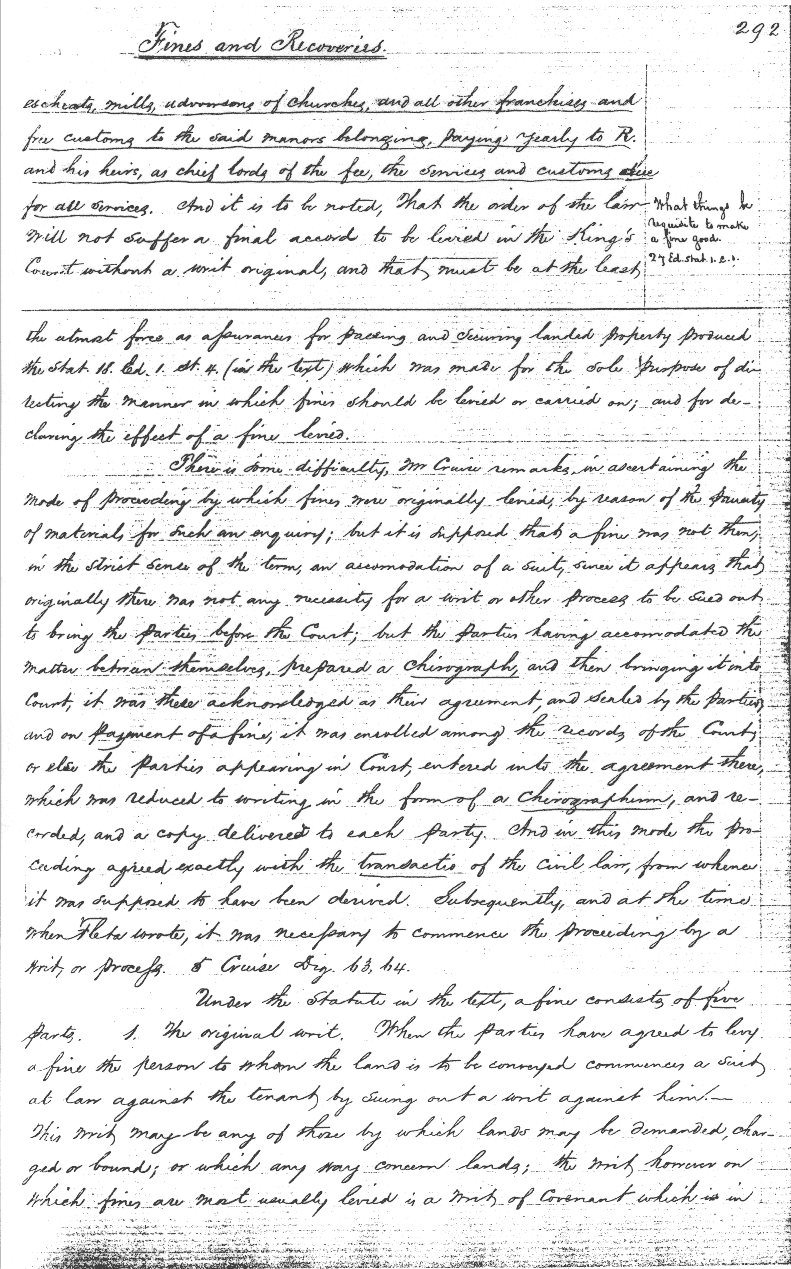 292
Fines and Recoveries.
escheats, mills, advowsons of churches, and all other franchises and
free customs to the said manors belonging, paying yearly to R.
and his heirs, as chief lords of the fee, the services and customs due
for all services. And it is to be noted, That the order of the law
will not suffer a final accord to be levied in the King's
Court without a writ original, and that must be at the least
What things be
requisite to make
a fine good.
27 Ed. stat. 1. c. 1.
the utmost force as assurances for passing and securing landed property produced
the stat. 18. Ed. 1. st. 4. (in the text) which was made for the sole purpose of di-
recting the manner in which fines should be levied or carried on; and for de-
claring the effect of a fine levied.
There is some difficulty, Mr Cruise remarks, in ascertaining the
mode of proceeding by which fines were originally levied, by reason of the paucity
of materials for such an enquiry; but it is supposed that a fine was not then,
in the strict sense of the term, an accomodation of a suit, since it appears that
originally there was not any necessity for a writ or other process to be sued out
to bring the parties before the Court; but the parties having accomodated the
matter between themselves, prepared a chirograph, and then bringing it into
Court, it was there acknowledged as their agreement, and sealed by the parties,
and on payment of a fine, it was enrolled among the records of the Court,
or else the parties appearing in Court, entered into the agreement there,
which was reduced to writing in the form of a chirographum, and re-
corded, and a copy delivered to each party. And in this mode the pro-
ceeding agreed exactly with the transactio of the civil law, from whence
it was supposed to have been derived. Subsequently, and at the time
when Fleta wrote, it was necessary to commence the proceeding by a
writ, or process. 5 Cruise Dig. 63, 64.
Under the statute in the text, a fine consists of five
parts. 1. The original writ. When the parties have agreed to levy
a fine the person to whom the land is to be conveyed commences a suit
at law against the tenant by suing out a writ against him.—
This writ may be any of those by which lands may be demanded, char-
ged or bound; or which any way concern lands; the writ however on
which fines are most usually levied is a writ of Covenant which is in